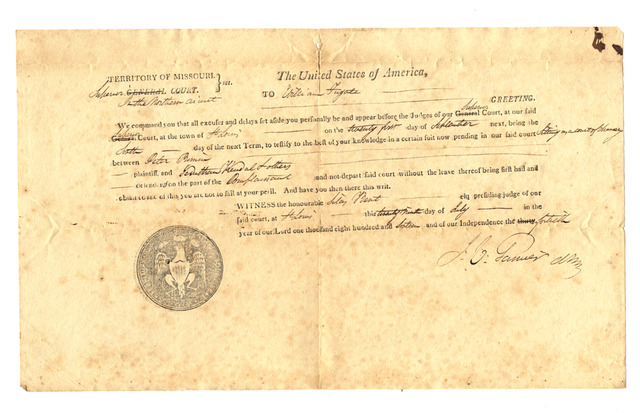 TERRITORY OF MISSOURI. } ss. The United States of America,
Superior GENERAL COURT.
In the Northern circuit TO William
Superior GREETING.
We command you that all excuses and delays set aside you personally be and appear before the Judges of our General Court, at our said
General Court, at the town of St Louis on the twenty first day of September next, being the
Sixth day of the next Term, to testify to the best of your knowledge in a certain suit now pending in our said court sitting as a court of Chancery
between Peter
plaintiff, and & others
defendant on the part of the Complainant and not depart said court without the leave thereof being first had and
obtained of this you are not to fail at your peril. And have you then there this writ.
WITNESS the honourable Silas Bent presiding judge of our
said court, at St Louis this day of July in the
year of our Lord one thousand eight hundred and sixteen and of our Independence the thirty fortieth